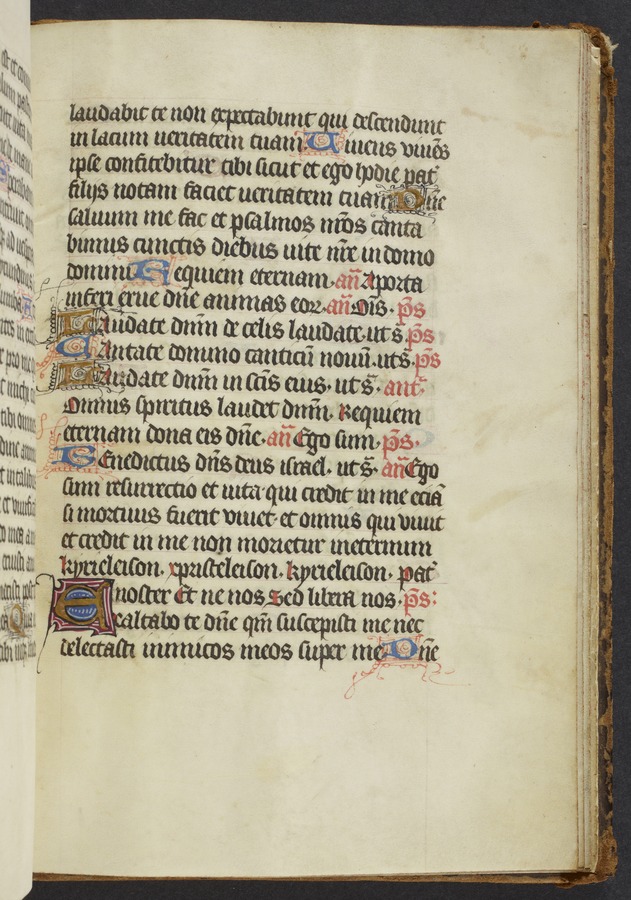 laudabit te non expectabunt qui descendunt
in lacum ueritatem tuam Uiuens viuēs
ipse confitebitur tibi sicut et ego hodie pat̄
filijs notam faciet ueritatem tuam Dn̄e
saluum me fac et psalmos n̄ros canta
bimus cunctis diebus uite n̄re in domo
domini Requiem eternam. an̄ A porta
inferi erue dn̄e animas eoꝝ. an̄ Om̄s. p̄s
Laudate dn̄m de celis laudate. ut s̄. p̄s
Cantate domino canticū nouū. ut s̄. p̄s
Laudate dn̄m in sc̄is eius. ut s̄. ant̄.
Omnis spiritus laudet dn̄m. Requiem
eternam dona eis dn̄e. an̄ Ego sum. p̄s.
Benedictus dn̄s deus israel. ut s̄. an̄ Ego
sum resurrectio et uita qui credit in me eciā
si mortuus fuerit viuet. et omnis qui viuit
et credit in me non morietur ineternum
kyrieleison. xpristeleison. kyrieleison. pat̄
noster Et ne nos Sed libera nos. p̄s:
Exaltabo te dn̄e qm̄ suscepisti me nec
delectasti inimicos meos super me Dn̄e